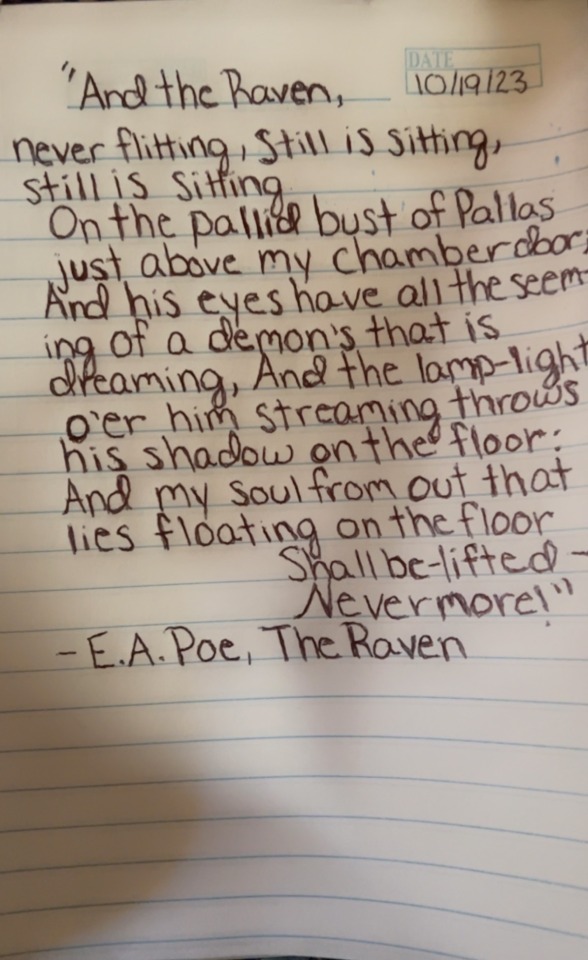 DATE
10/19/23
"And the Raven,
never flitting, still is sitting,
still is sitting
On the pallid bust of Pallas
just above my chamber door;
And his eyes have all the seem-
ing of a demon's that is
dreaming, And the lamp-light
o'er him streaming throws
his shadow on the floor:
And my soul from out that
lies floating on the floor
Shall be-lifted-
Nevermore!"
- E.A. Poe, The Raven